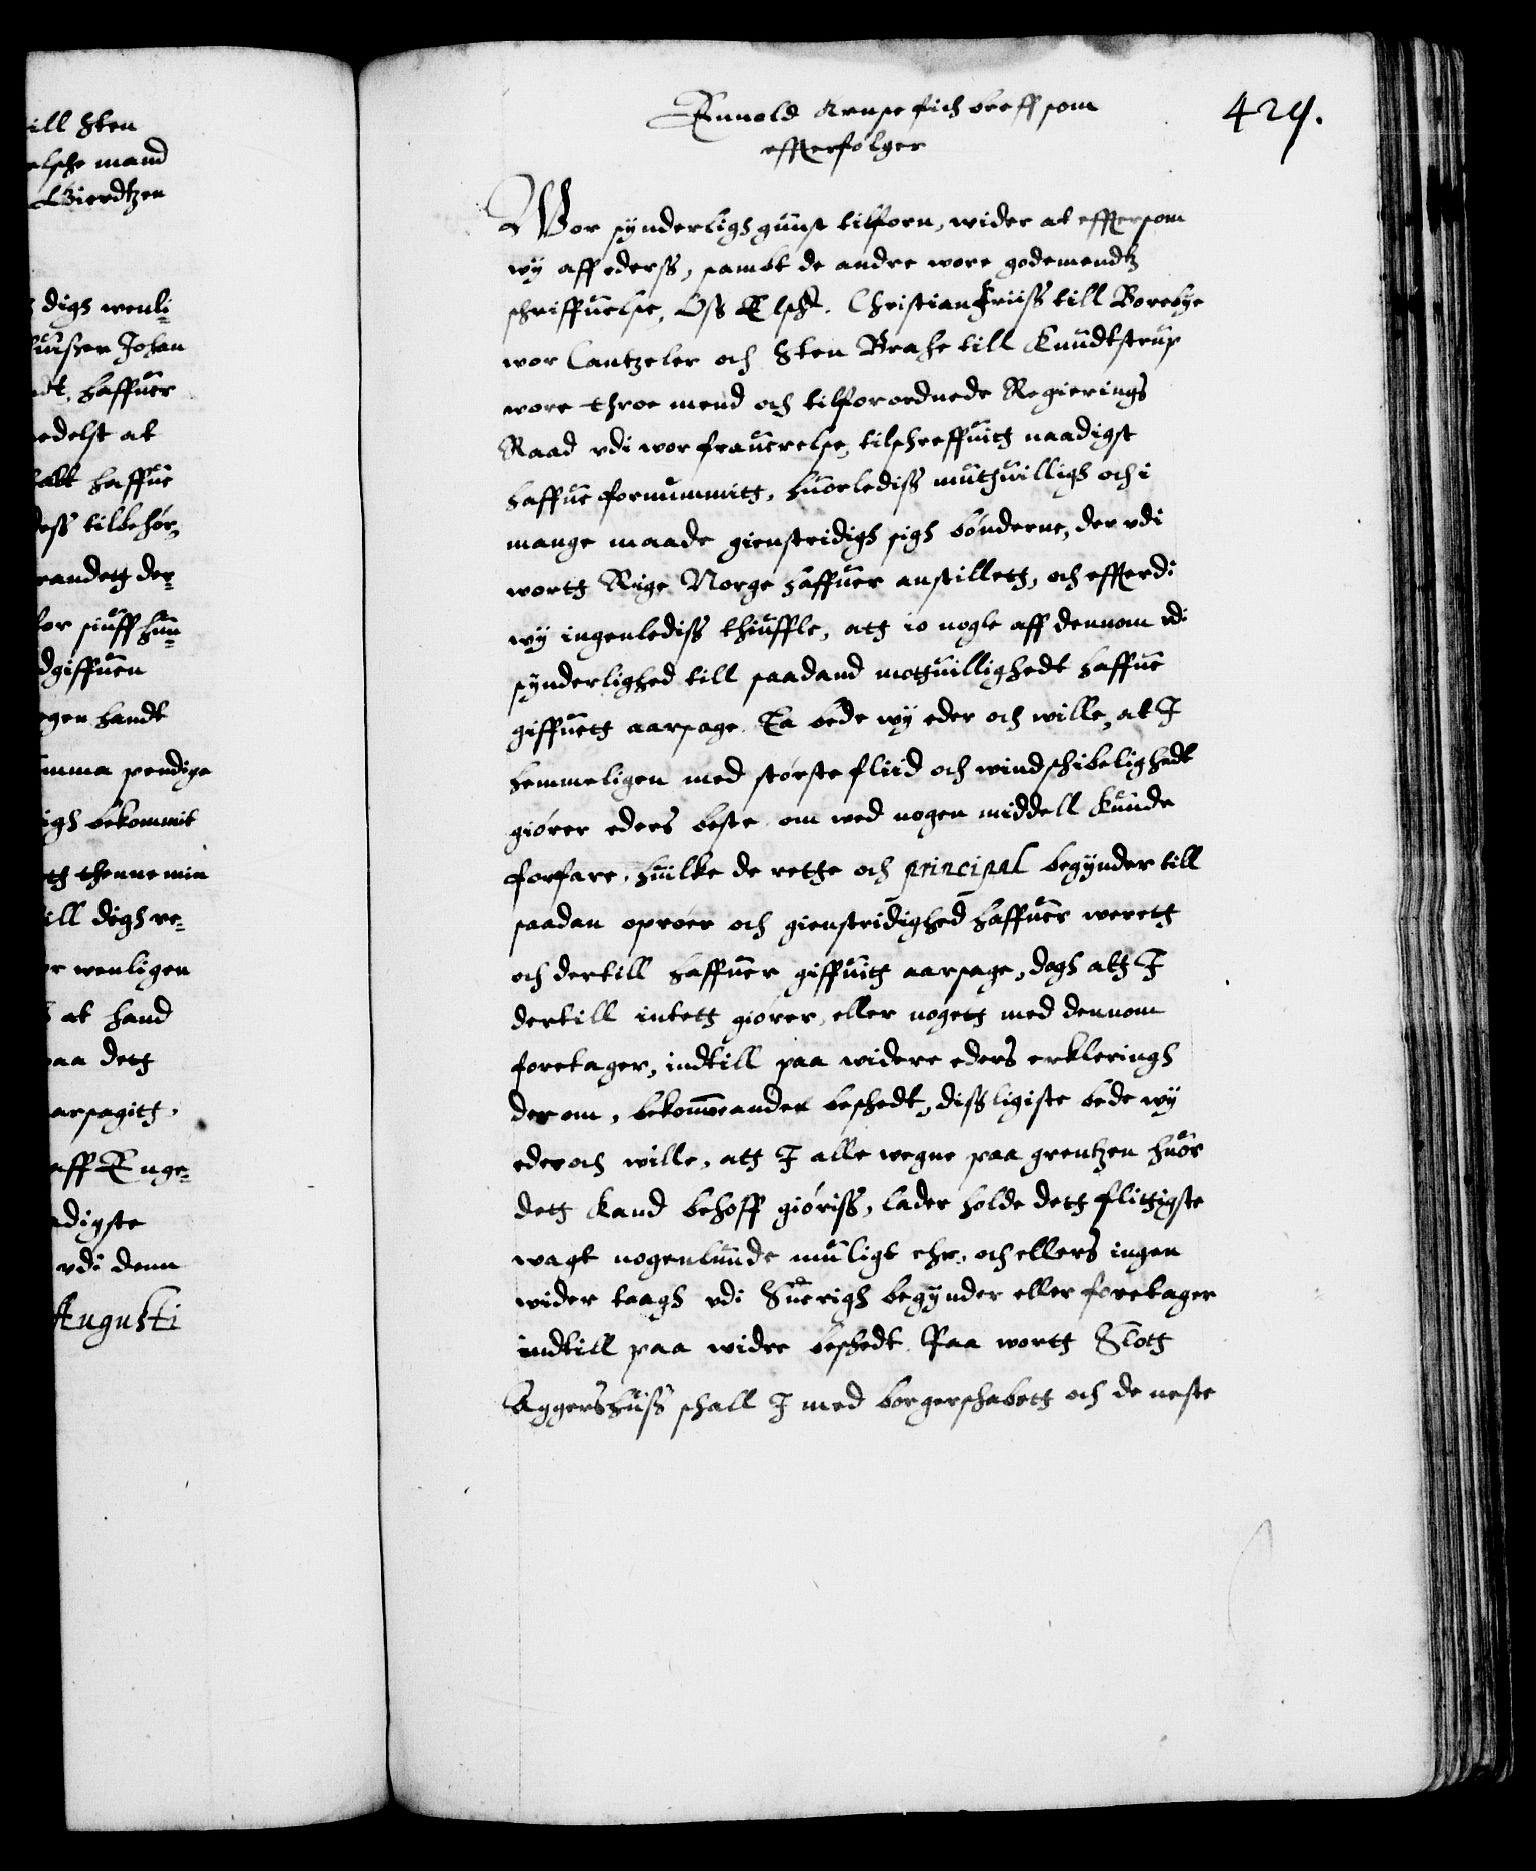 ill Sten
elsche mand
Giordtzen
digh wenli=
huisser Johan
dt, haffuer
edelst at
att haffue
dess tilbehør,
randett der=
for siuff hun=
dgiffuen
egen handt
imma sendige
igh bekommit
tt thenne min
ill digh re=
or wenligen
at hand
paa dett
arsagitt,
aff Enge=
digste
vdi denn
Augusti
429.
Enuold Kruse fich breff som
effterfølger
Wor synderligh gunst tilforn, wider at effersom
wy affederss, sambt de andre wore godemendtz
schriffuelse, Oss Elsch. Christian Friiss till Borebye
wor Cantzeler och Sten Brahe till Knudtstrup
wore throe mend och tilforordnede Regierings
Raad vdi wor frauerelse, tilschreffuitt naadigst
haffue fornummitt, huorlediss muthuilligh och i
mange maade gienstridigh sigh bønderne, der vdi
wortt Rige Norge haffuer anstillett, och efferdi
wy ingenlediss thiuffle, att io nogle aff dennom vdi
synderlighed till saadand motuillighedt haffue
giffuett aarsage. Da bede wy eder och wille, at I
hemmeligen med største fliid och windschibelighedt
giører eders beste om wed nogen middell kunde
forfare, huilke de rette och principal begynder till
saadan oprøer och gienstridighed haffuer werett
och dertill haffuer giffuitt aarsage, dogh att I
dertill intett giører, eller nogett med dennom
foretager, indtill paa widere eders erkleringh
derom, bekommeandet beschedt, dissligiste bede wy
eder och wille, att I alle wegne paa grentzen huor
dett kand behoff giøriss, lader holde dett flittigste
wagt nogenlunde muligt ehr, och ellers ingen
wider taagh vdi Suerigh begynder eller foretager
indtill paa widre beschedt. Paa wortt Slott
Aggershuss schall I med borgerschabett och de neste